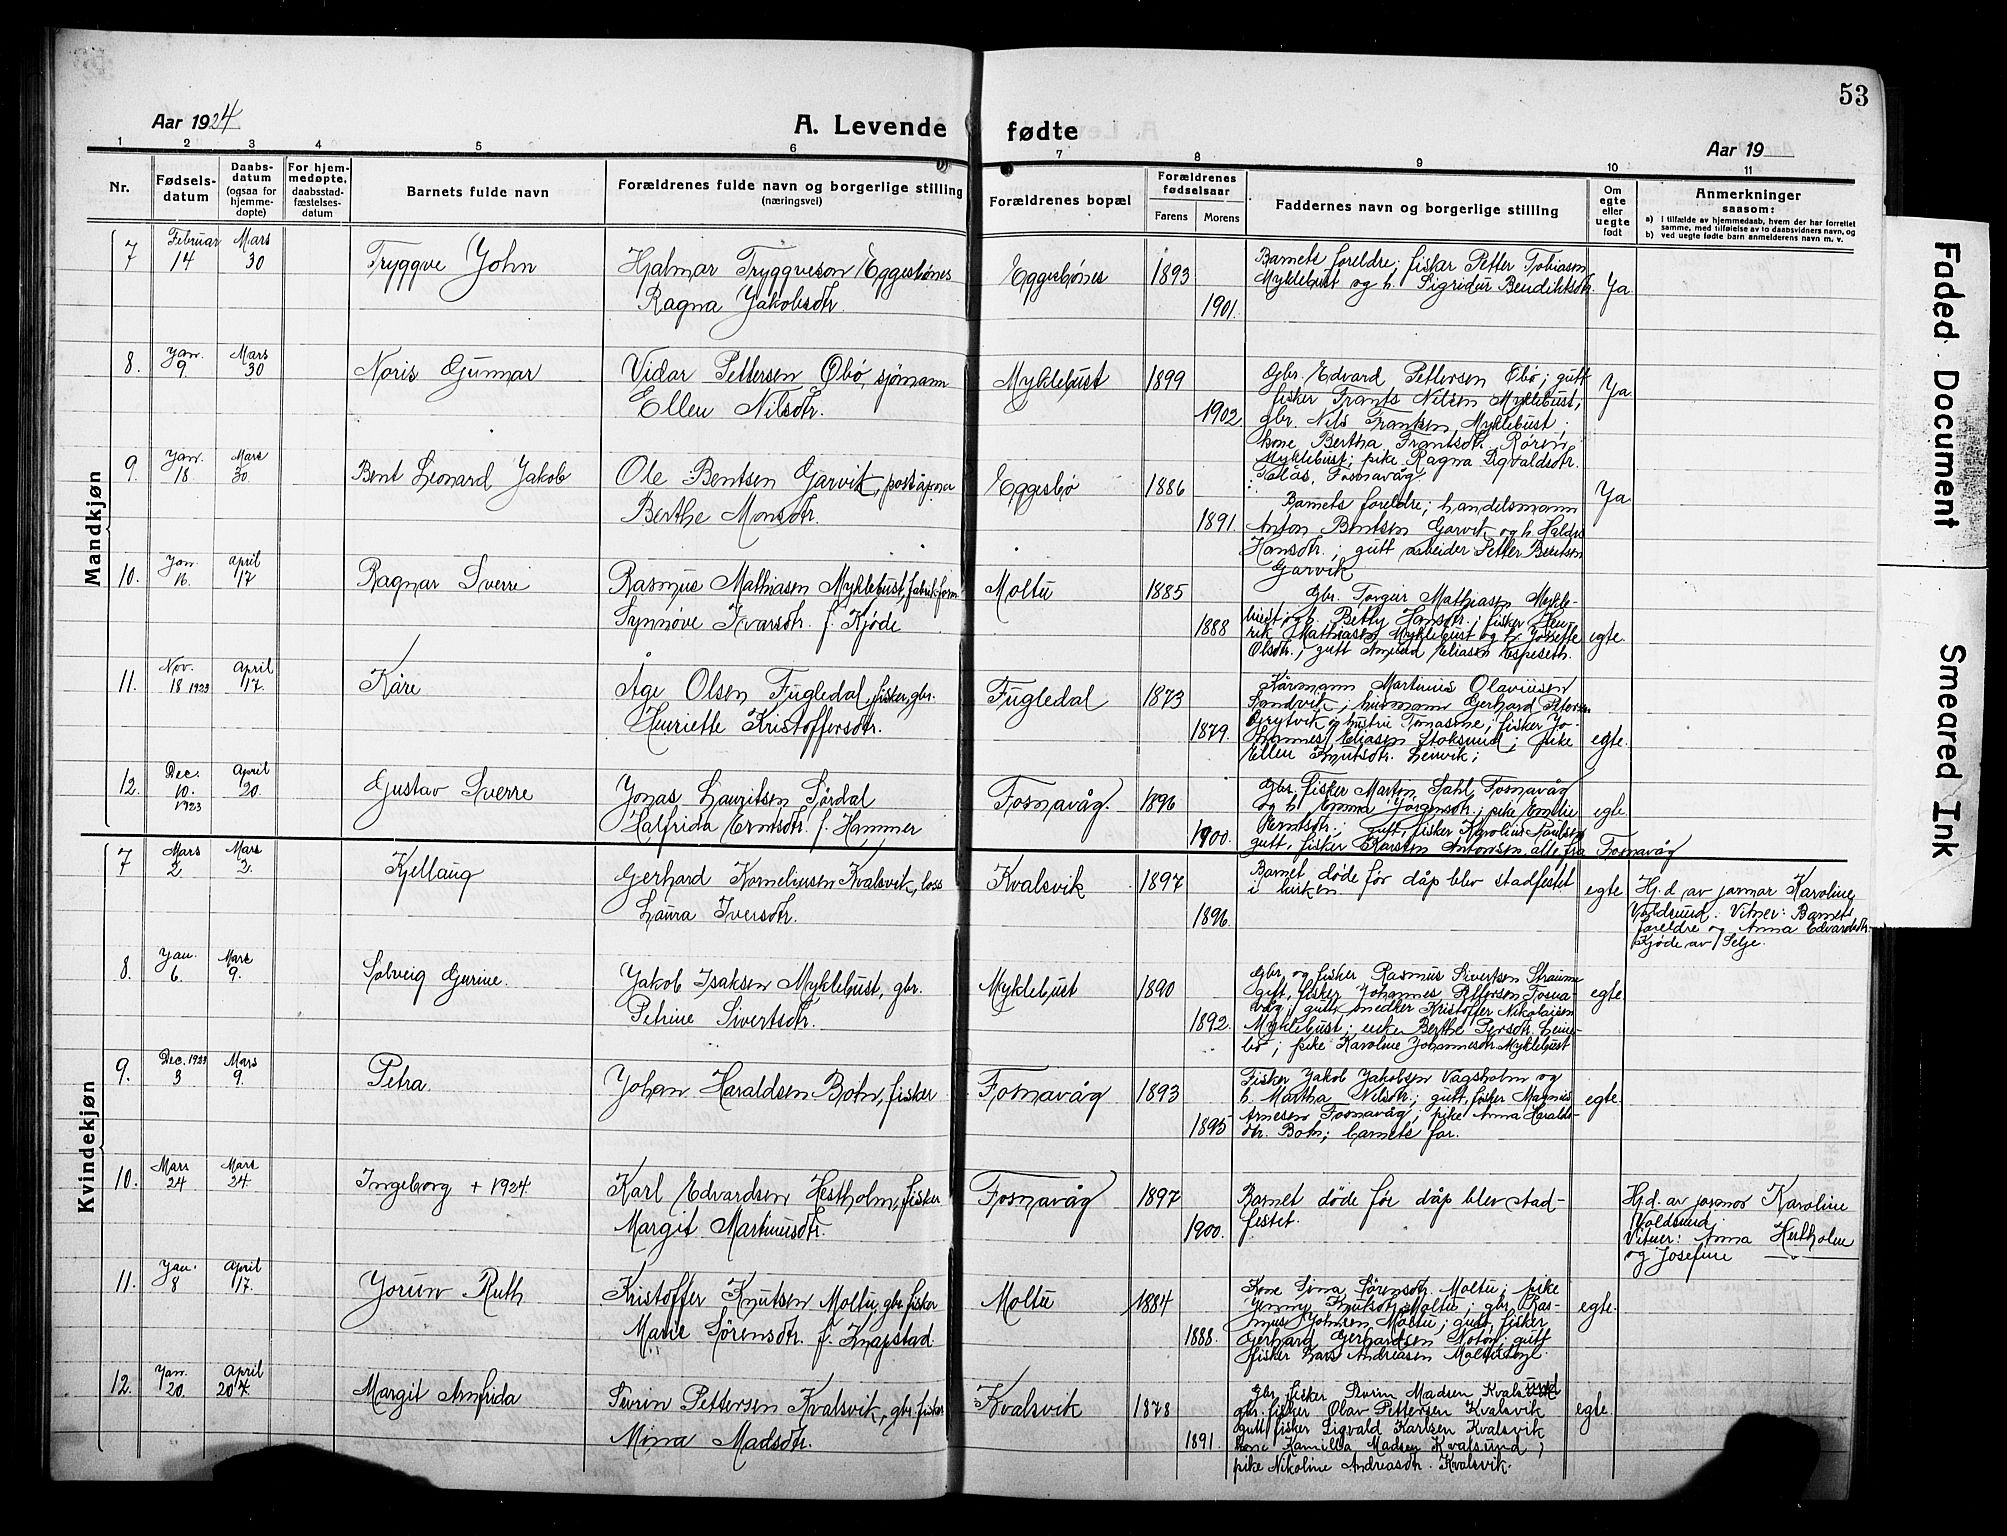 53
Aar 1924
A. Levende fødte
Aar 19
1 2 3 4 5 6 7 8 9 10 11
Nr.
Fødsels-
datum
Daabs-
datum
(ogsaa for
hjemme-
døpte)
For hjem-
medøpte,
daabsstad-
fæstelses-
datum
Barnets fulde navn
Forældrenes fulde navn og borgerlige stilling
(næringsvei)
Forældrenes bopæl
Forældrenes
fødselsaar
Farens Morens
Faddernes navn og borgerlige stilling
Om
egte
eller
uegte
født
Anmerkninger
saasom:
a) i tilfælde av hjemmedaab, hvem der har forrettet
samme, med tilføielse av to daabsvidners navn, og
b) ved uegte fødte barn anmelderens navn m. v.
Mandkjøn
7 Februar 14 Mars 30 Tryggve John Hjalmar Tryggveson Eggesbönes Eggesbönes 1893
Ragna Jakobsdtr. 1901.
Barnets foreldre; fisker Petter Tobiasen
Myklebust og h. Sigridur Bendiktsdtr. Ja.
8. Jan. 9. Mars 30 Noris Gunnar Vidar Pettersen Øbö, sjömann Myklebust 1899
Ellen Nilsdtr. 1902.
Gbr. Edvard Pettersen Øbö; gutt
fisker Frants Nilsen Myklebust,
gbr. Nils Frantsen Myklebust;
kone Bertha Frantsdtr. Rören
Myklebust; pike Ragna Sigvaldsdtr.
Fosnavåg Ja
9. Jan. 18 Mars 30. Bent Leonard Jakob Ole Bentsen Garvik, poståpner Eggesbö 1886
Berthe Monsdtr. 1891.
Barnets foreldre; handelsmann
Anton Bentsen Garvik og h.
Hansdtr.; gutt arbeider Petter Bentsen
Garvik Ja
10. Jan. 16. April 17 Ragnar Sverre Rasmus Mathiasen Myklebust, Moltu 1885
Synnöve Ivarsdtr. f. Kjöde 1888
Gbr. Torgeir Mathiasen Mykle-
bust og h. Betty Hansdtr; fisker Hen-
rik Mathiasen Myklebust og h. Josefie
Olsdtr.; gutt Eliasen Espeseth. egte.
11. Nov. 18 1923 April 17. Kåre Åge Olsen Fugledal, fisker, gbr. Fugledal 1873
Henriette Kristoffersdtr. 1879.
Kårmann Martinus Olaviusen
Sandvik; husmann Gerhard Petersen
Grytvik og hustru Tomasine; fisker Jo-
hannes Eliasen Stoksund; pike
Ellen Knutsdtr. Leirvik; egte.
12. Dec. 10. 1923 April 20. Gustav Sverre Jonas Lauritsen Sördal Fosnavåg. 1896
Halfrida Erntsdtr. f. Hammer 1900.
Gbr. fisker Martin Fosnavåg
og h. Emma Jörgensdtr.; pike Emilie
Berntsdtr.; gutt, fisker Karolius Paulsen
gutt, fisker Karsten Antonsen, alle fra Fosnavåg egte
Kvindekjøn
7 Mars 2 Mars 2. Kjellaug Gerhard Korneliussen Kvalsvik, loss Kvalsvik 1897
Laura Iversdtr. 1896.
Barnet döde för dåp blev stadfestet
i kirken egte
Hj.d. av jormor Karoline
Voldsund. Vitner: Barnets
foreldre og Anna Edvardsdtr.
Kjöde av Selje.
8. Jan. 6 Mars 9. Solveig Gurine. Jakob Isaksen Myklebust, gbr. Myklebust 1890
Petrine Sivertsdtr. 1892.
Gbr. og fisker Rasmus Sivertsen Straume
gift, fisker Johannes Pettersen Fosna-
våg; gutt, snedker Kristoffer Nikolaisen
Myklebust; enke Berthe Persdtr. Leine-
bö; pike Karoline Johannesdtr. Myklebust egte
9. Dec. 1923 3 Mars 9. Petra. Johan Haraldsen Botn, fisker Fosnavåg 1893
1895
Fisker Jakob Jakobsen Vågsholm og
h. Martha Nilsdtr.; gutt, fisker Magnus
Arnesen Fosnavåg; pike Anna Haralds-
dtr. Botn; barnets far. egte.
10. Mars 24 Mars 24. Ingeborg + 1924. Karl Edvardsen Hestholm, fisker Fosnavåg 1897
Margit Martinusdtr. 1900.
Barnet döde för dåp blev stad-
festet.
Hj.d. av jormor Karoline
Voldsund.
Vitner: Anna Hestholm
og Josefine — " —
11. Jan. 8 April 17. Jorunn Ruth Kristoffer Knutsen Moltu, gbr. fisker Moltu 1884
Marie Sörensdtr. f. Knapstad 1888.
Kone Sina Sörensdtr. Moltu; pike
Jenny Knutsdtr. Moltu; gbr. Ras-
mus Johnsen Moltu; gutt, fisker
Gerhard Gerhardsen Notöy; gutt
fisker Lars Andreasen egte.
12. Jan. 20. April 20 Margit Arnfrida Severin Pettersen Kvalsvik, gbr. fisker Kvalsvik 1878
Mina Madsdtr. 1891.
Gbr. fisker Severin Madsen Kvalsund
gbr. fisker Olav Pettersen Kvalsvik
gutt fisker Sigvald Karlsen Kvalsvik
kone Kamilla Madsen Kvalsund;
pike Nikoline Andreasdtr. Kvalsvik. egte.
Faded Document
Smeared Ink